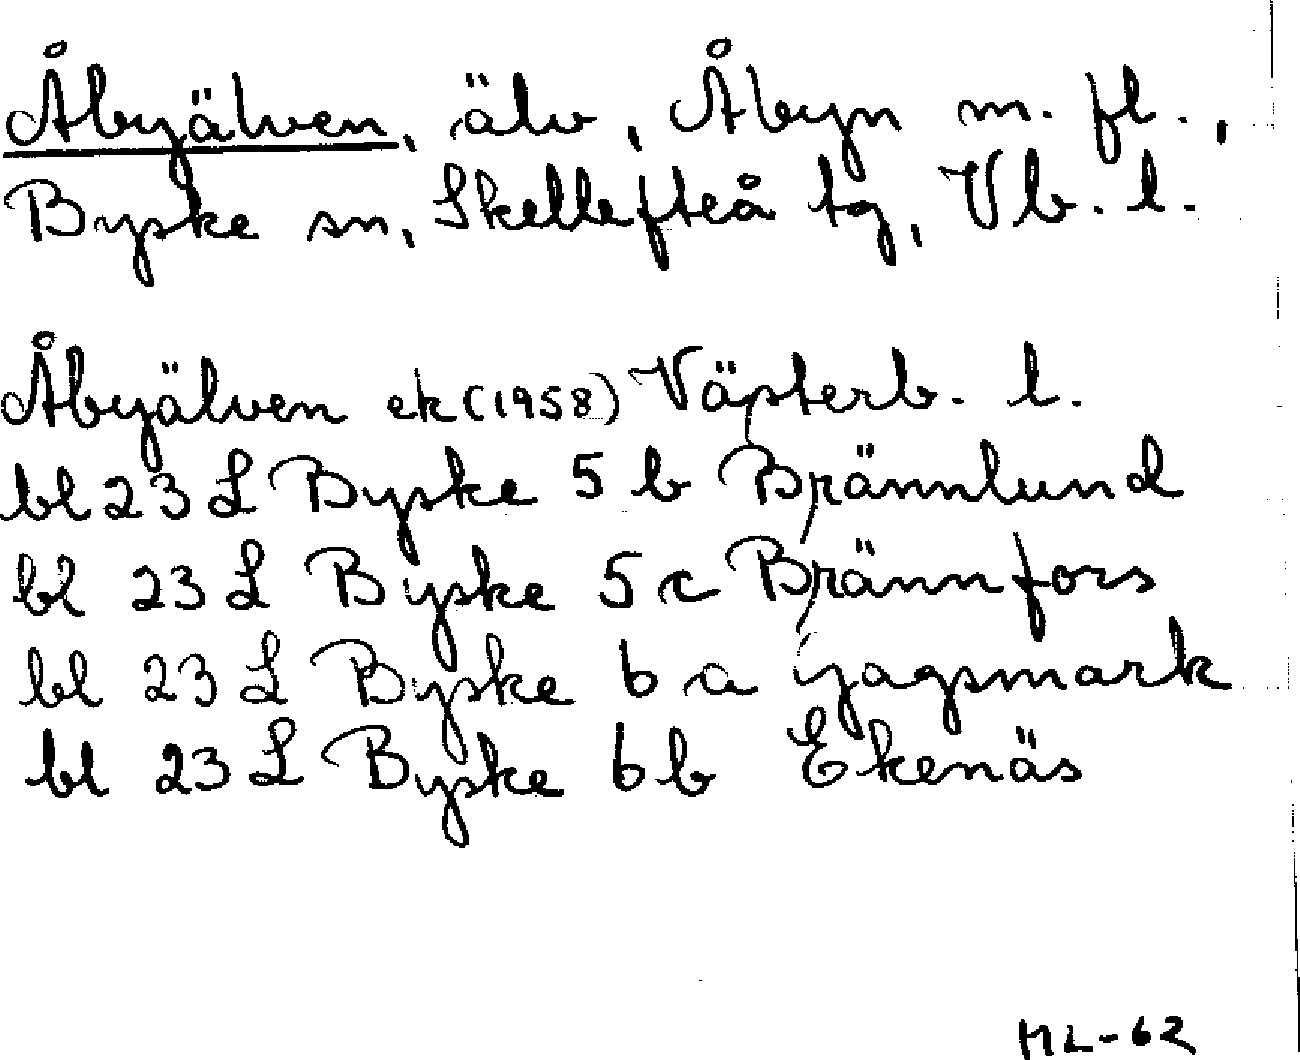 Åbyälven, älv, Åbyn m. fl.,
Byske sn, Skellefteå tg, Vb. l.
Åbyälven ek (1958) Västerb. l.
bl 23 L Byske 5 b Brännlund
bl 23 L Byske 5 c Brännfors
bl 23 L Byske 6 a yagsmark
bl 23 L Byske 6 b Ekenäs
ML-62